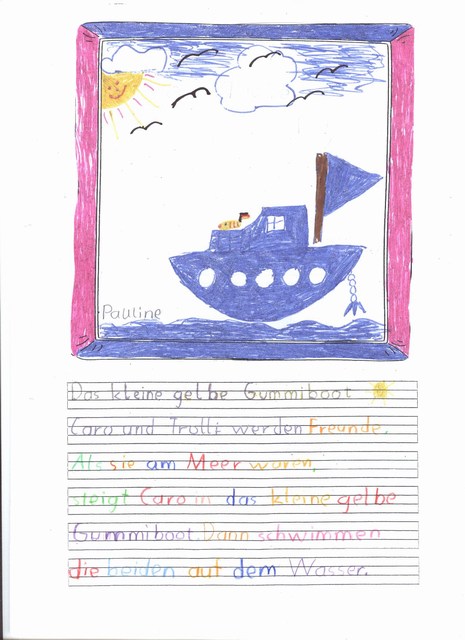 Pauline
Das kleine gelbe Gummiboot
Caro und Trolli werden Freunde.
Als sie am Meer waren,
steigt Caro in das kleine gelbe
Gummiboot. Dann schwimmen
die beiden auf dem Wasser.